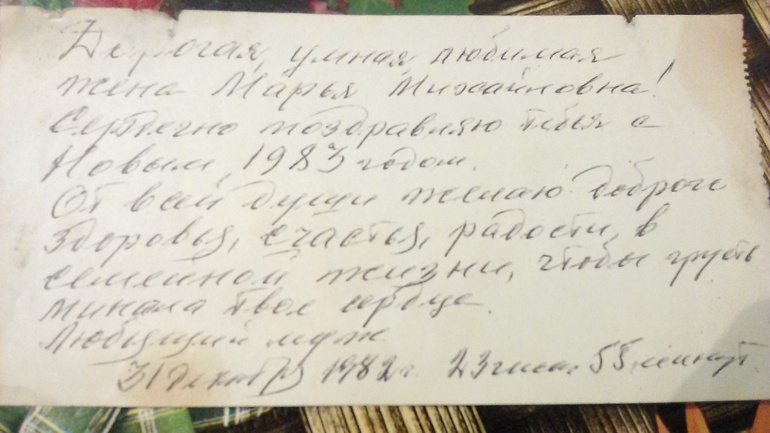 Дорогая, умная, любимая
жена Марья Михайловна!
Сердечно поздравляю тебя с
Новым, 1983 годом.
От всей души желаю доброго
здоровья, счастья, радости, в
семейной жизни, чтобы грусть
минала твое сердце.
Любящий муж
31 декабря 1982 г. 23 часа 55 минут.